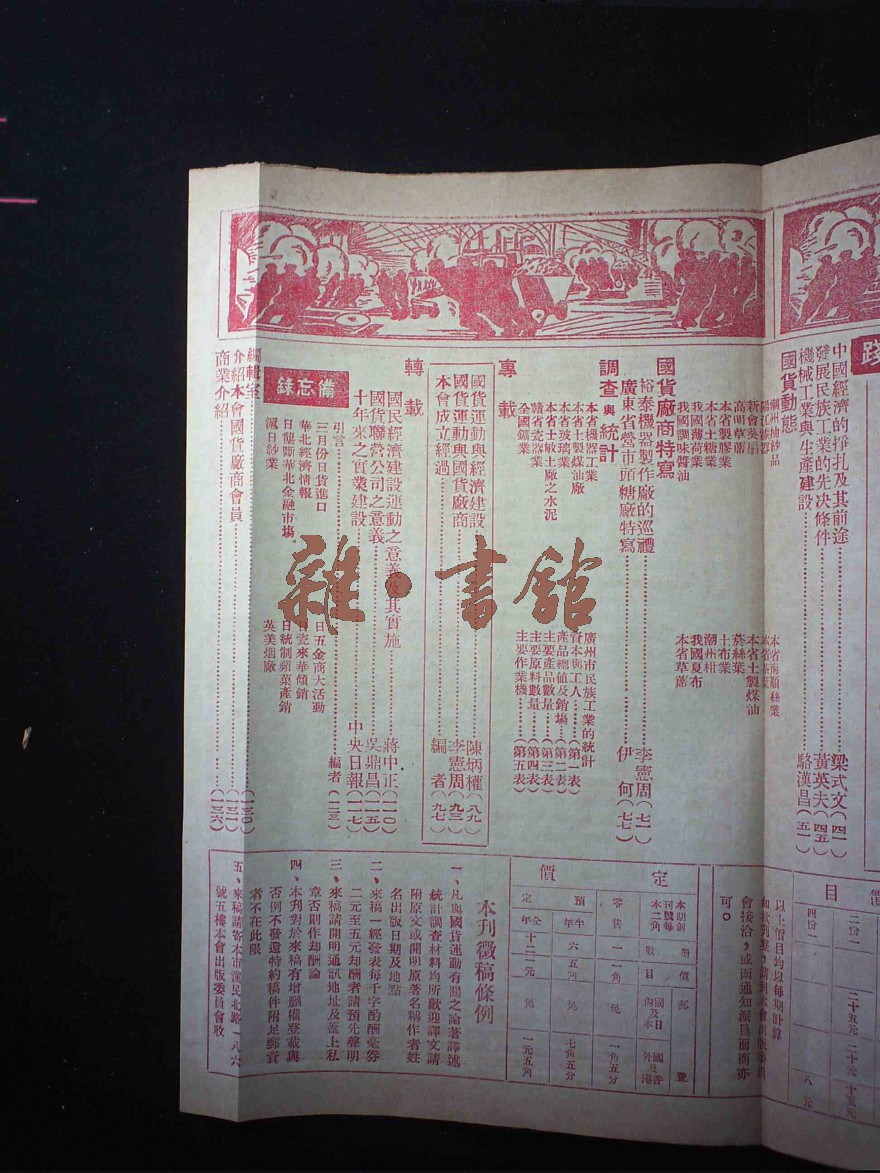 踐
中國經濟的掙扎及其前途……梁式文(四一)
發展民族工業的先决條件……黃英夫(四五)
機械工業與生產建設……駱漢昌(五一)
國貨動態
潮州抽紗品
陽江漆器
新會葵扇
高明草蓆
本省製膠業
本省土糖業
我國薄荷業
我國調味醬油
本省南順絲業
本省土製煤油
葵絲葉
土布業
潮州柑
我國夏布
本省草蓆
國貨廠商特寫
裕泰機器製作廠的巡禮……李憲周(七一)
廣東省營市頭糖廠特寫……伊 何(七七)
調查與統計
本省機器工業
本省土製煤油廠
本省玻璃業
本省士敏土廠之水泥
贛省瓷器業
全國鑛業
廣州市民族工業的統計
資本與工人……(第一表)
產品總值及銷場……(第二表)
主要產品數量……(第三表)
主要原料數量……(第四表)
主要作業機……(第五表)
專載
國貨運動與經濟建設……陳炳權(八九)
國貨運動與國貨廠商……李憲周(九三)
本會成立經過……編 者(九七)
轉載
國民經濟建設運動之意義及其實施……蔣中正(一一〇)
國貨聯營公司之意義……吳鼎昌(一一五)
十年來之實業建設……中央日報(一一七)
備忘錄
引言……編者(一二三)
三月份日貨進口
華北經濟情報
日壟斷華北金融市場
滬日紗業
日五金商大活動
日瓷來華傾銷
日統制蘋菓產銷
英美烟廠
編輯室……(一三〇)
介紹本會國貨廠商會員……(一三一)
商業介紹……(一三六)
價目
二份一 二十五元 二十元 十五元
四份一 八元
以上價目均以每期計算
如欲刊登，請到本會出版委員
會接洽，或函通知派員面商亦
可。
定價
本期創刊號每本二角
册數 價目 郵費
國內及日本 國外及香港
零售 一 二角 免 一角五分
預定 半年 六 五角 免 七角五分
全年 十二 一元 免 一元五角
本刊徵稿條例
一、凡與國貨運動有關之論著譯述
統計調查材料均所歡迎譯文請
附原文或開明原著名稱作者姓
名出版日期及地點
二、來稿一經發表每千字酌酬毫券
二元至五元却酬者請預先聲明
三、來稿請開明通訊地址及蓋上私
章否則作却酬論
四、本刊對於來稿有增刪權登載與
否例不發還特約稿件附足郵資
者不在此限
五、來稿請寄本市漢民北路一八六
號五樓本會出版委員會收
雜·書館